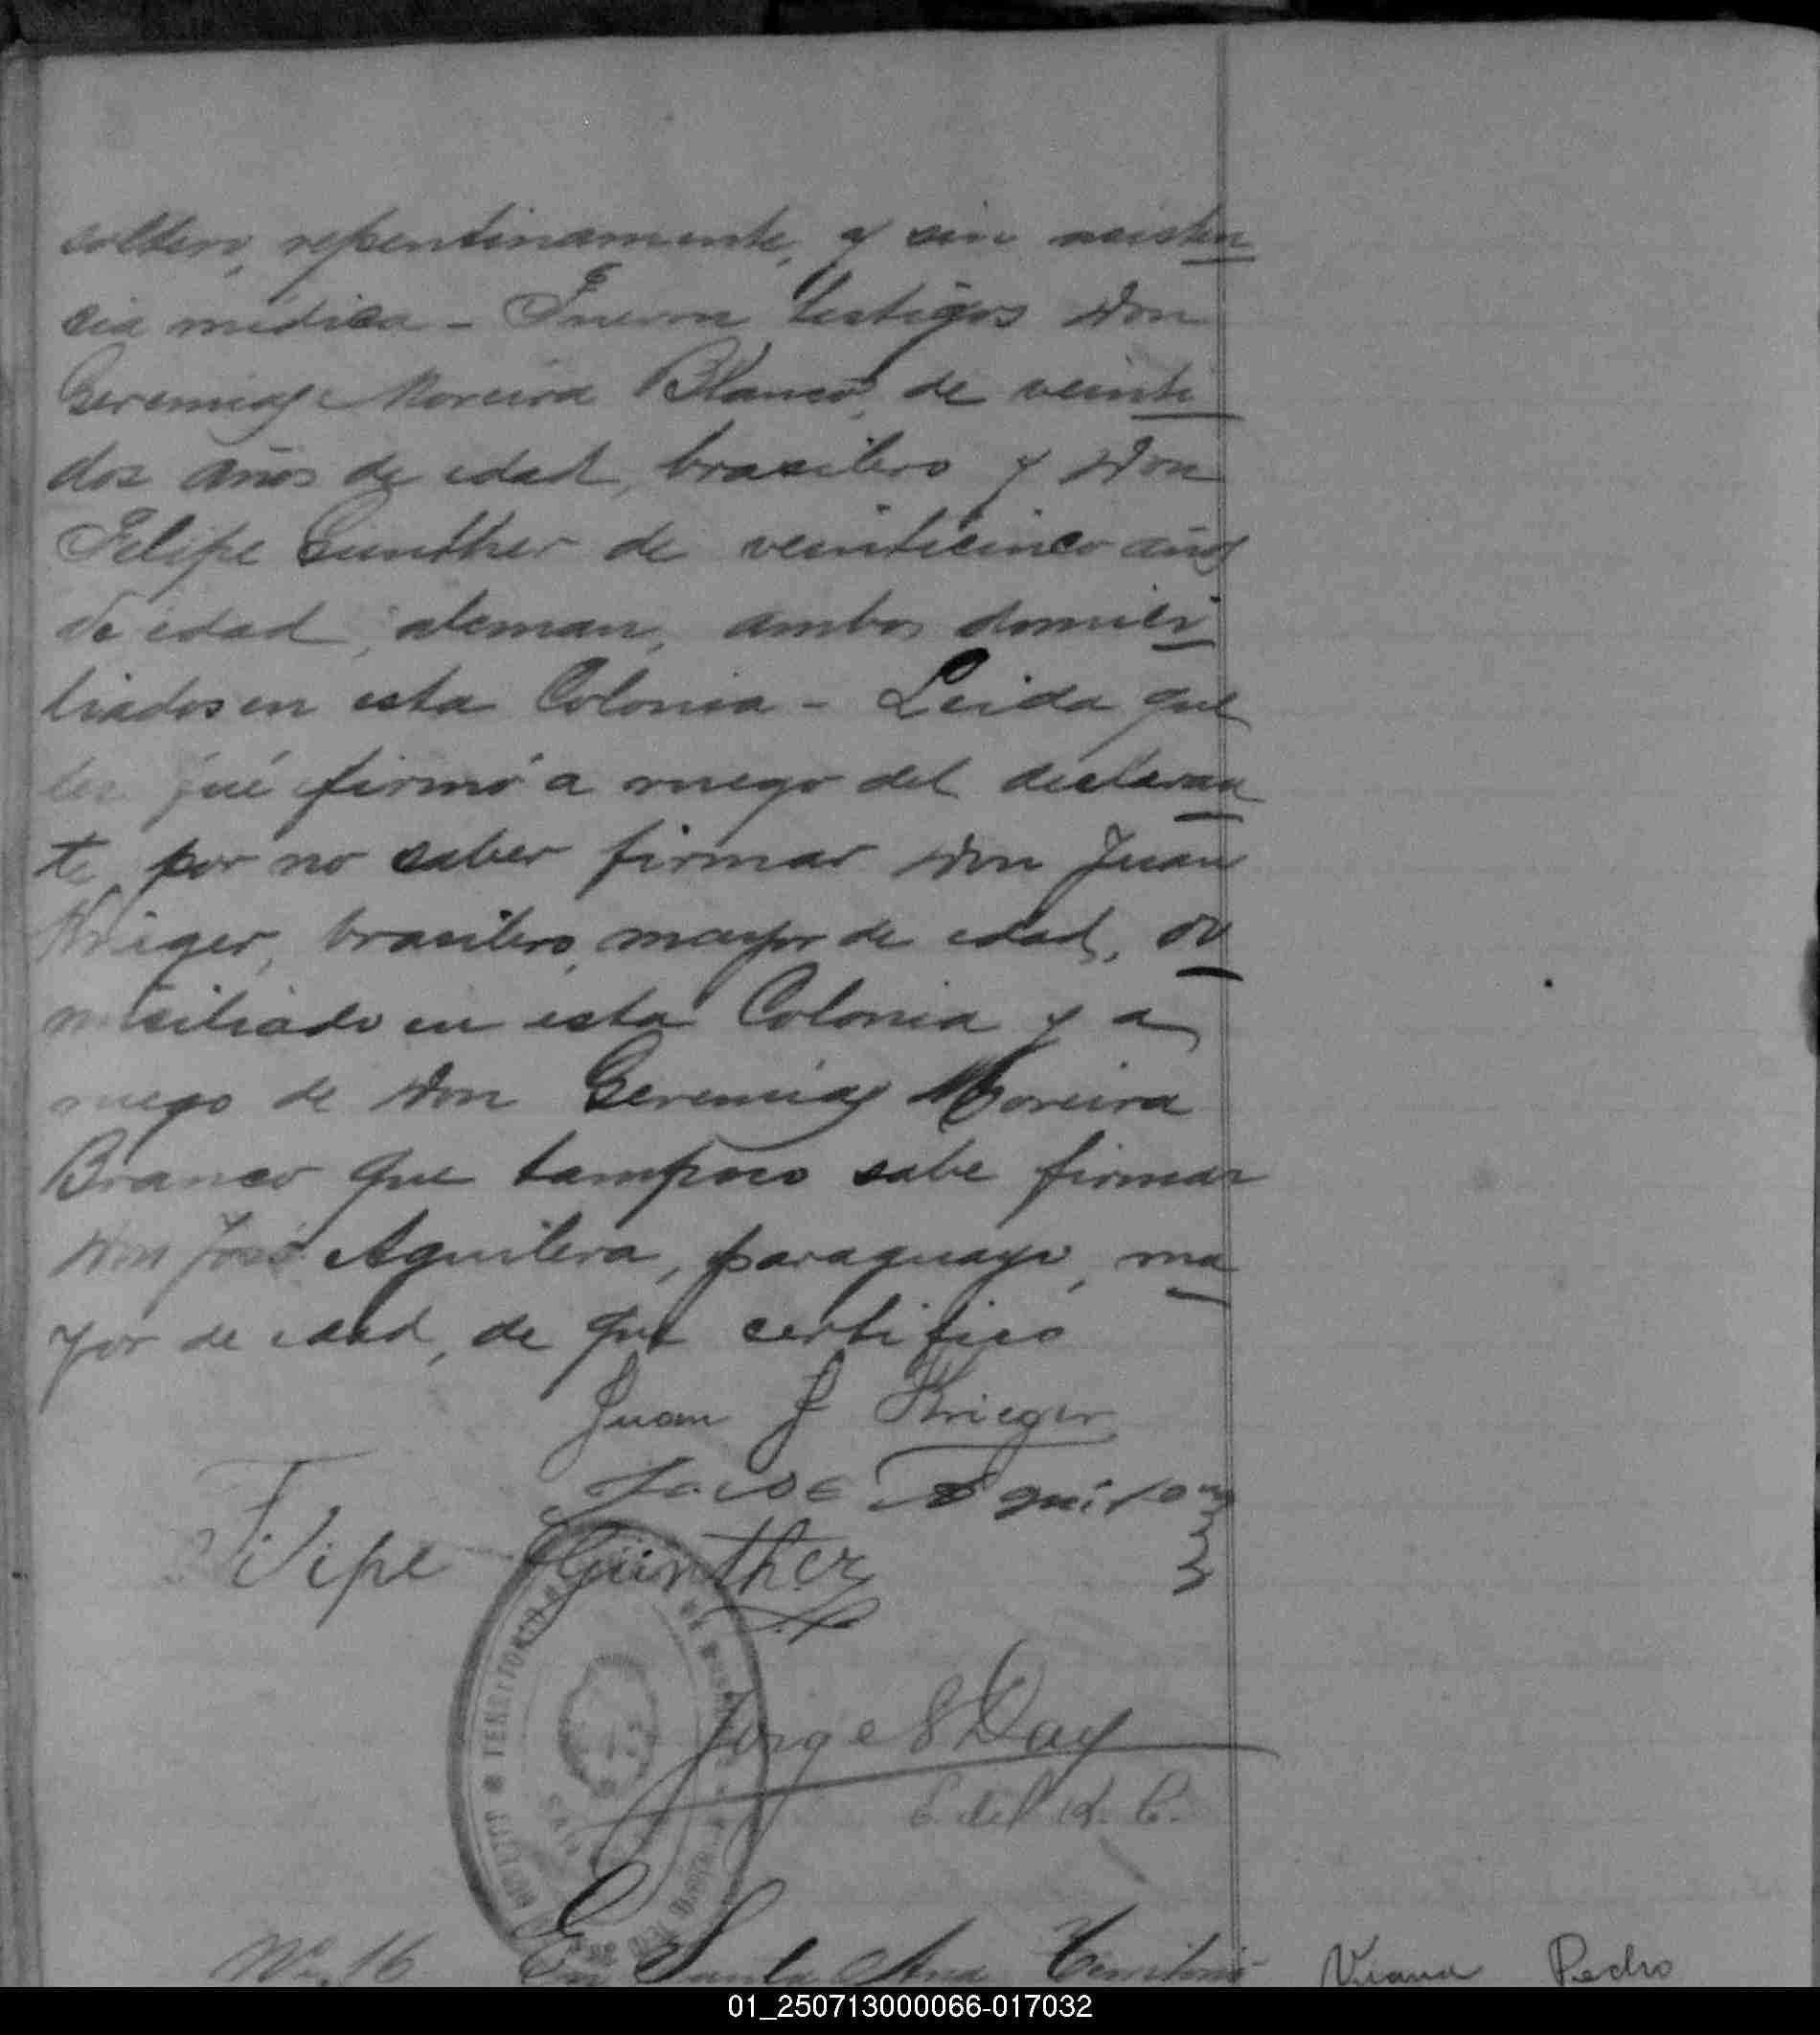 soltero, repentinamente, y sin asisten
cia médica - Fueron testigos Don
Geremias Moreira Blanco, de veinti
dos años de edad, brasilero y Don
Felipe Gunther de veinticinco años
de edad, aleman, ambos domici
liados en esta Colonia - Leida que
les fué firmó a ruego del declaran
te por no saber firmar Don Juan
Krieger, brasilero, mayor de edad, do
miciliado en esta Colonia y a
ruego de Don Geremias Moreira
Branco que tampoco sabe firmar
Don José Aguilera, paraguayo, ma
yor de edad, de que certifico
Juan J Krieger
Filipe Günther
Jorge S Day
E. del R. C.
TERRITORIO
Nº 16 En Santa Ana Territorio
Viana Pedro
01_250713000066-017032